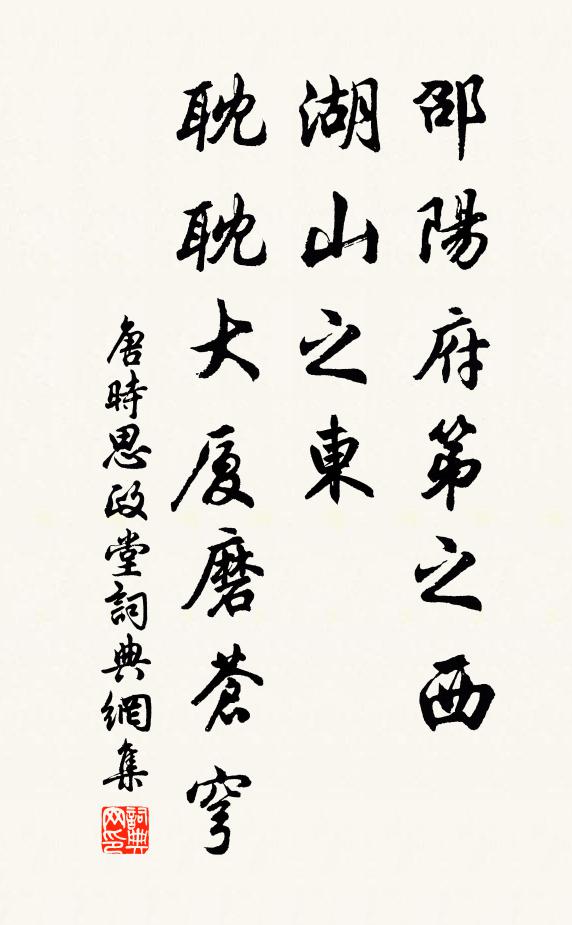 邵陽府第之西
湖山之東
耽耽大厦磨蒼穹
唐時思政堂詞典網集
詞典
网印